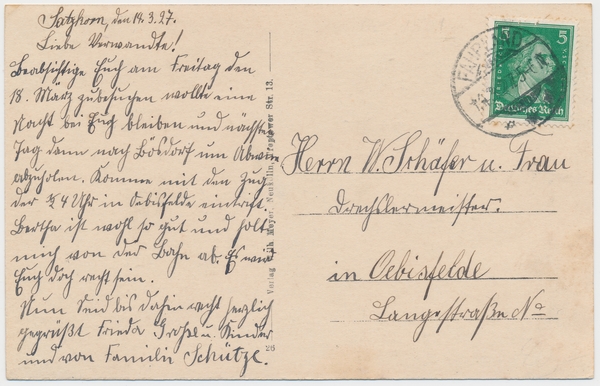 Satzkorn, den 14.3.27.
Liebe Verwandte!
Beabsichtige Euch am Freitag den
18. März zu besuchen wollte eine
Nacht bei Euch bleiben und nächsten
Tag dann nach Bösdorf um
abzuholen. Komme mit den Zug
der 3/4 4 Uhr in Oebisfelde eintrifft
Bertha ist wohl so gut und holt
mich von der Bahn ab. Es wird
Euch doch recht sein.
Nun Seid bis dahin recht herzlich
gegrüßt Frieda u. Kinder
und von Familie Schütze.
Verlag Meyer, Neukölln, Str. 13.
26
5 5
Deutsches Reich
Herrn W. Schäfer u. Frau
Drechslermeister.
in Oebisfelde
Langestraße No